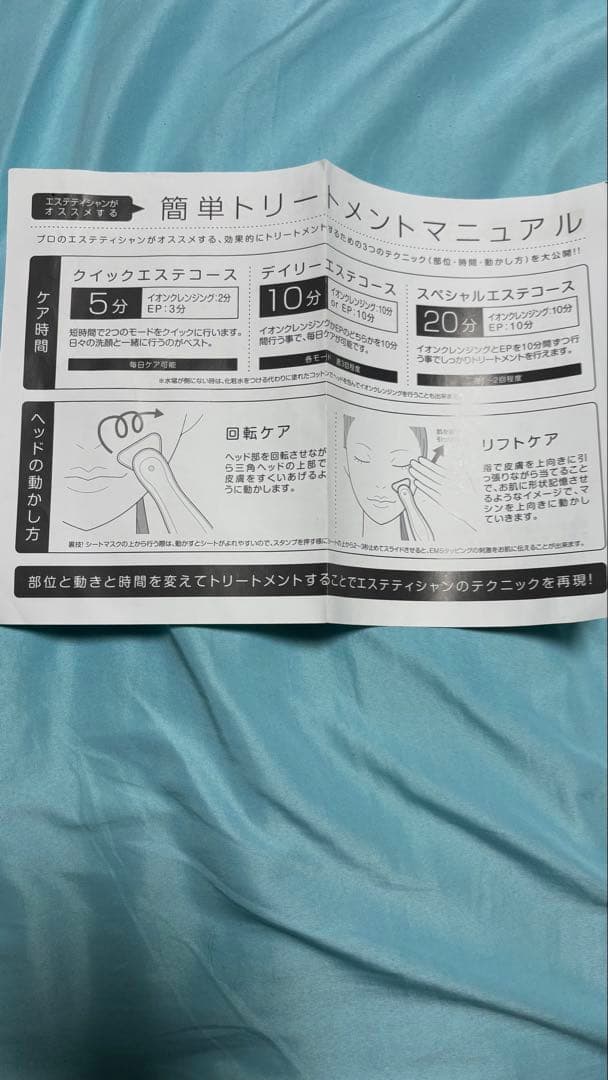 エステティシャンが
オススメする
簡単トリートメントマニュアル
プロのエステティシャンがオススメする、効果的にトリートメントするための3つのテクニック(部位・時間・動かし方)を大公開!!
ケア時間
クイックエステコース
5分
イオンクレンジング:2分
EP:3分
短時間で2つのモードをクイックに行います。
日々の洗顔と一緒に行うのがベスト。
毎日ケア可能
デイリーエステコース
10分
イオンクレンジング:10分
or EP:10分
イオンクレンジングかEPのどちらかを10分
間行う事で、毎日ケアが可能です。
各モード 週3回程度
スペシャルエステコース
20分
イオンクレンジング:10分
EP:10分
イオンクレンジングとEPを10分間ずつ行
う事でしっかりトリートメントを行えます。
2回程度
※水場が側にない時は、化粧水をつける代わりに塗れたコットンでヘッドを包んでイオンクレンジングを行うことも出来ます
ヘッドの動かし方
回転ケア
ヘッド部を回転させなが
ら三角ヘッドの上部で
皮膚をすくいあげるよ
うに動かします。
肌を
引っ
リフトケア
で皮膚を上向きに引
っ張りながら当てること
で、お肌に形状記憶させ
るようなイメージで、マ
シンを上向きに動かし
ていきます。
裏技!シートマスクの上から行う際は、動かすとシートがよれやすいので、スタンプを押す様にシートの上から2〜3秒止めてスライドさせると、EMSタッピングの刺激をお肌に伝えることが出来ます。
部位と動きと時間を変えてトリートメントすることでエステティシャンのテクニックを再現!